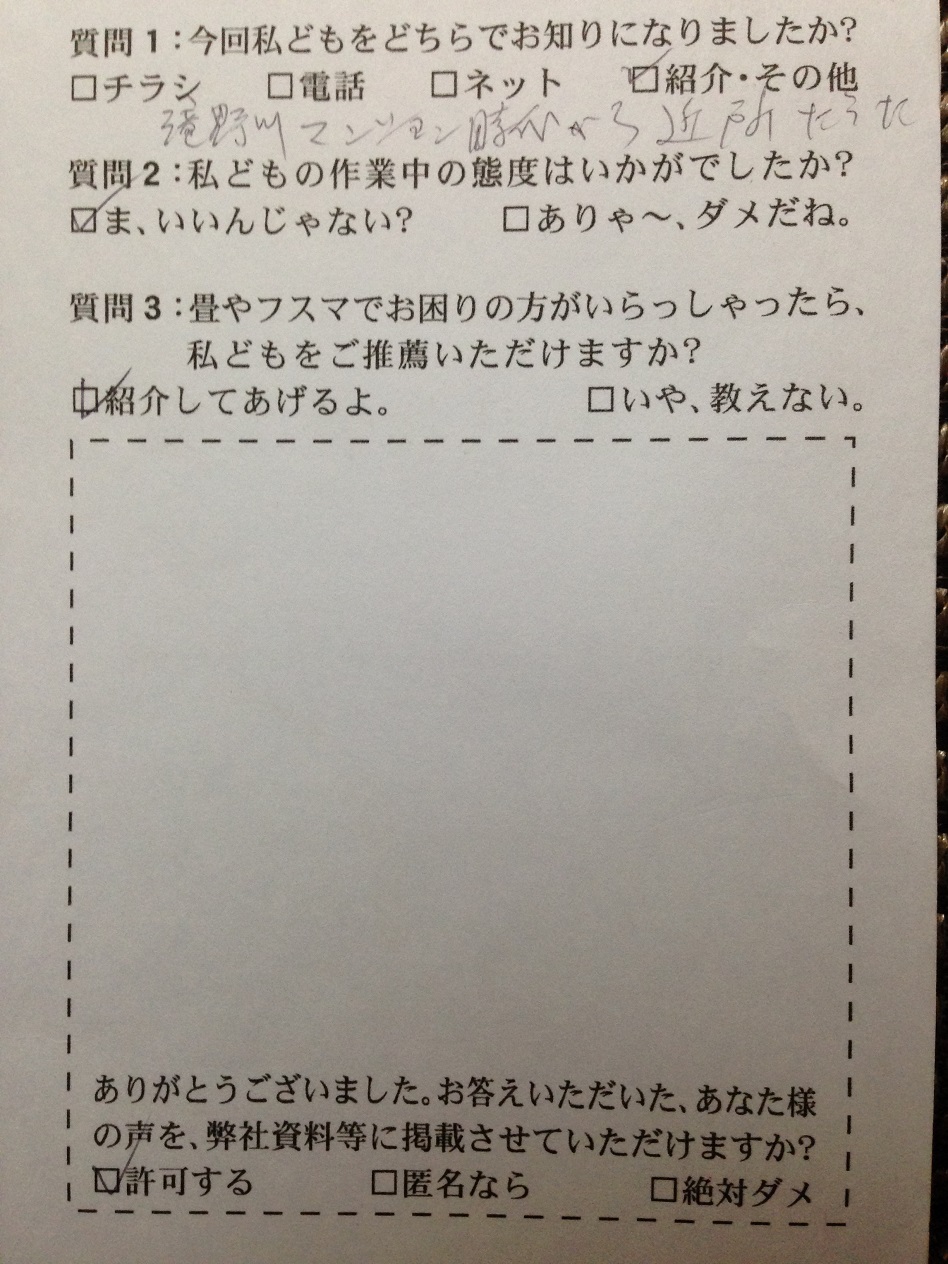 質問1:今回私どもをどちらでお知りになりましたか?
□チラシ □電話 □ネット ☑紹介・その他
滝野川マンション時代から近所だった
質問2:私どもの作業中の態度はいかがでしたか?
☑ま、いいんじゃない? □ありゃ〜、ダメだね。
質問3:畳やフスマでお困りの方がいらっしゃったら、
私どもをご推薦いただけますか?
☑紹介してあげるよ。 □いや、教えない。
ありがとうございました。お答えいただいた、あなた様
の声を、弊社資料等に掲載させていただけますか?
☑許可する □匿名なら □絶対ダメ